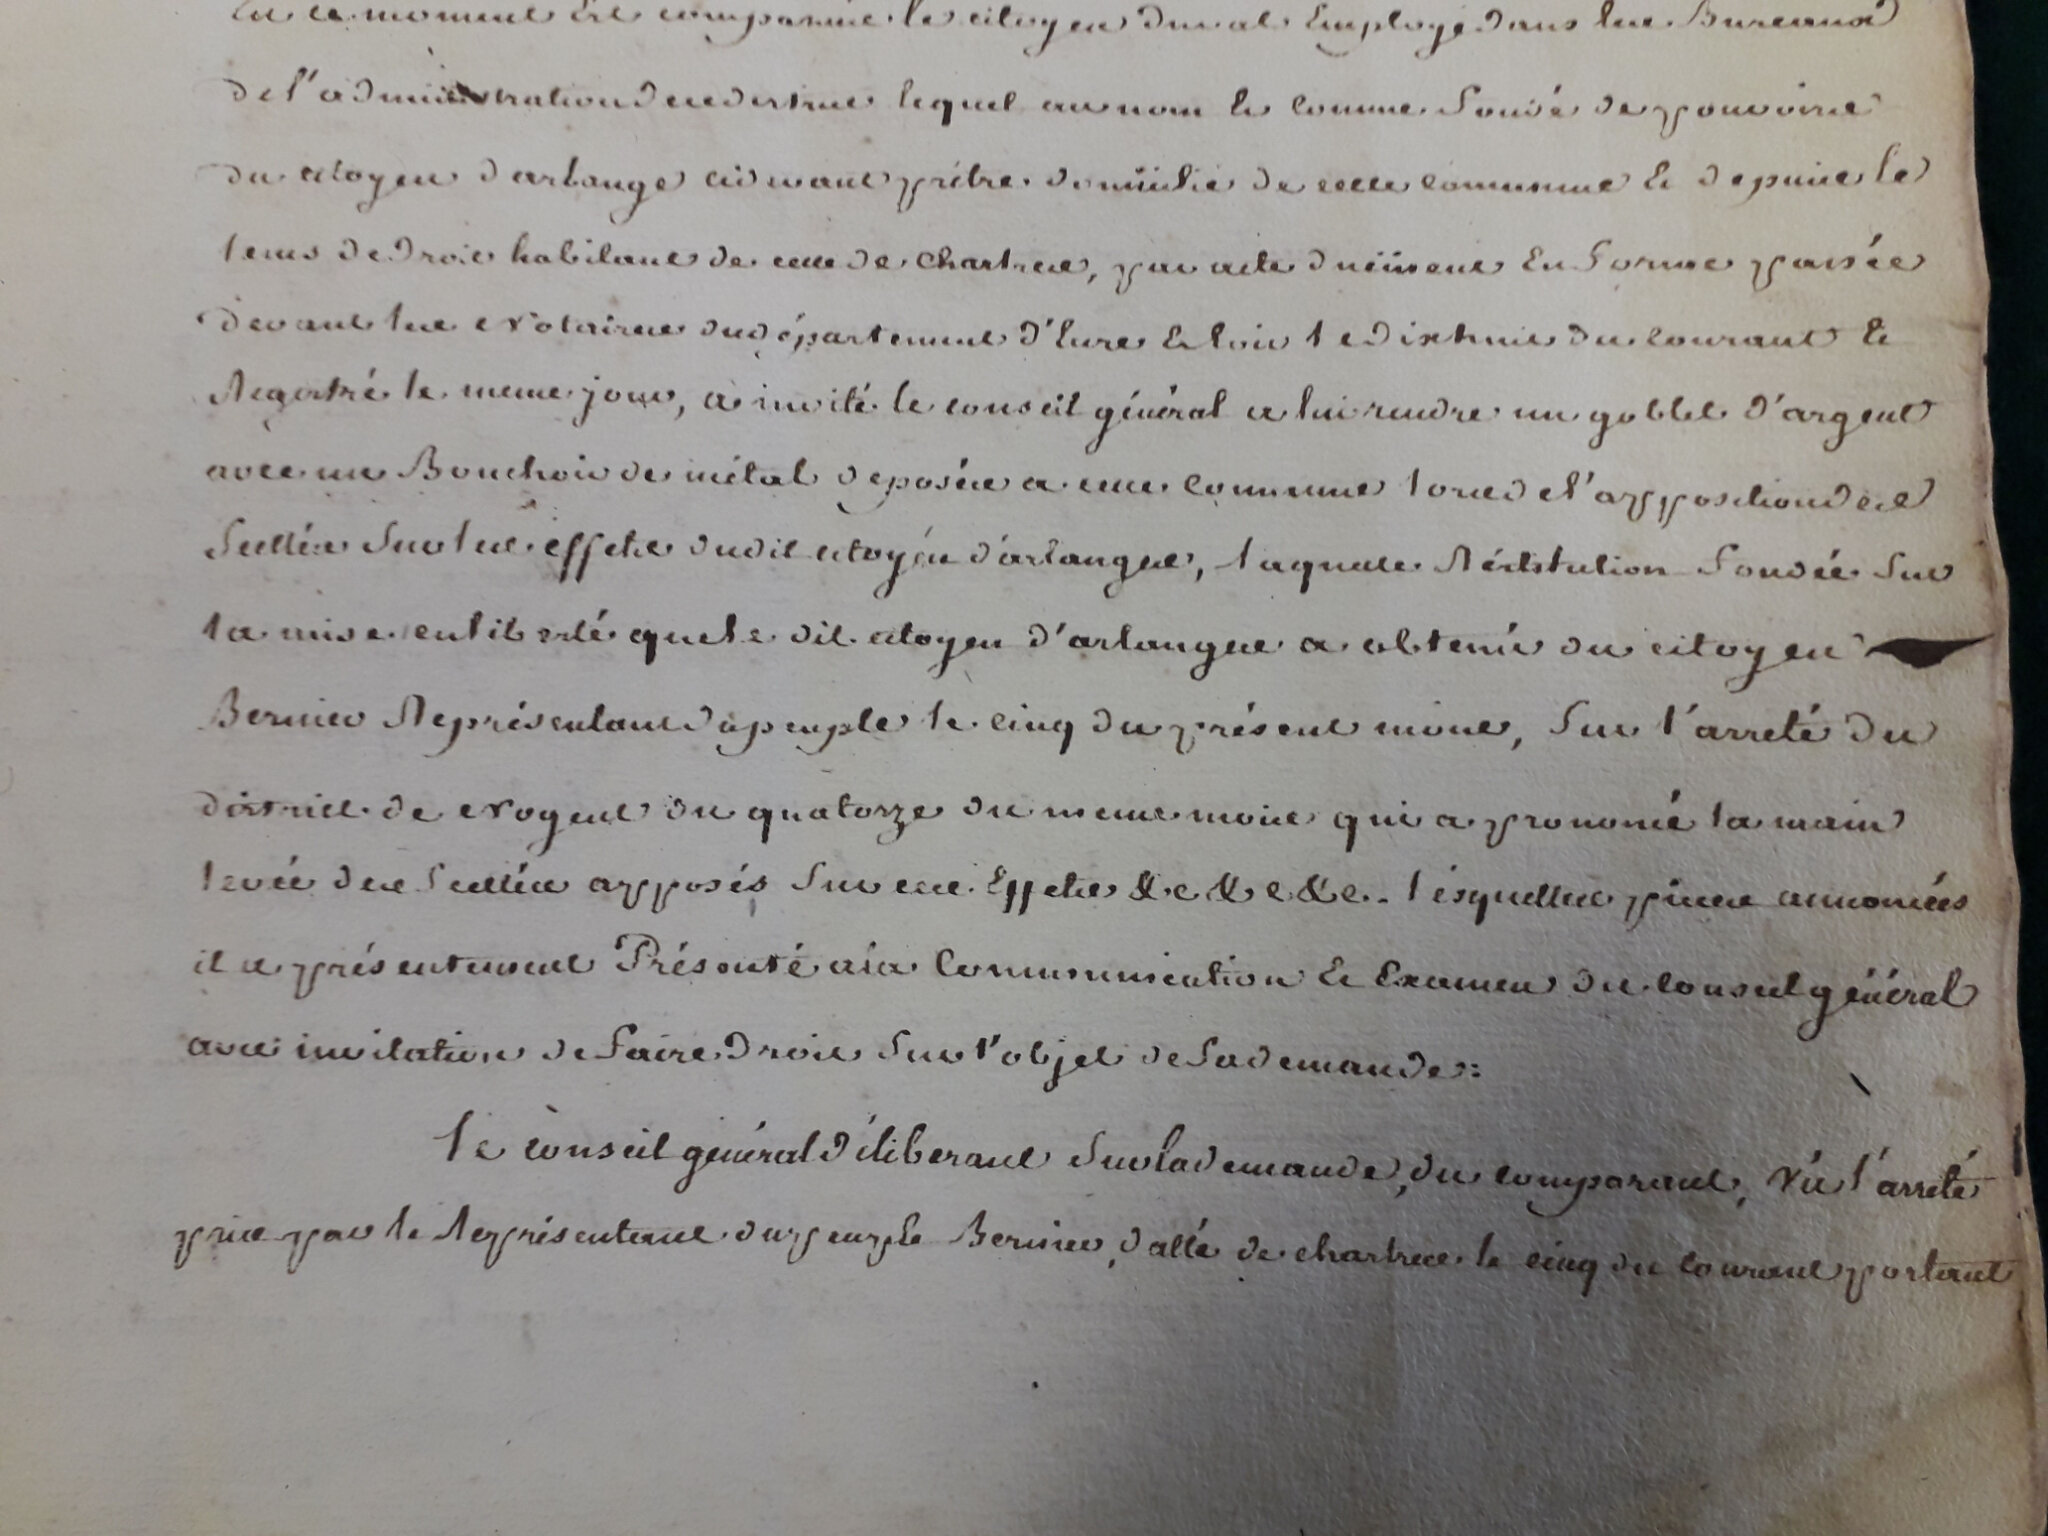 En ce moment est comparûe le citoyen Duval Employé dans les Bureaux
de l'administration de ce district lequel au nom et comme fondé de pouvoirs
du citoyen d'arlange cidevant prêtre domicilié de cette commune et depuis le
tems de droit habitant de celle de chartres, par acte duëment en forme passée
devant les Notaires du département d'Eure et loir le dixhuit du courant et
Registré le meme jour, a invité le conseil général a lui rendre un goblet d'argent
avec un Bouchoir de métal déposés a cette commune lors de l'apposition des
scellés sur les effets dudit citoyen d'arlanges, laquelle Réstitution fondée sur
la mise en liberté que le dit citoyen d'arlanges a obtenüe du citoyen
Bernier Représentant du peuple le cinq du présent mois, sur l'arreté du
district de Nogent du quatorze du meme mois qui a prononcé la main
levée des scellés apposés sur ces Effets &c &c &c. lésquelles pieces annoncées
il a présentement Présenté a la Communication et Examen du conseil général
avec invitation de faire droit sur l'objet de sa demande:
le conseil général délibérant sur la demande, du comparant, Vû l'arreté
pris par le Représentant du peuple Bernier, datté de chartres le cinq du courant portant